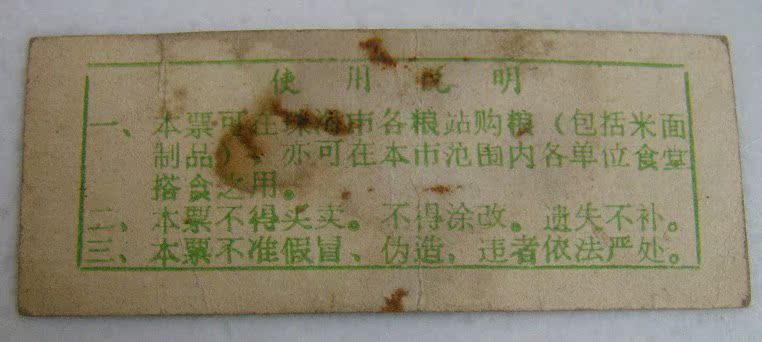 使用说明
一、本票可在珠海市各粮站购粮（包括米面
制品）、亦可在本市范围内各单位食堂
搭食之用。
二、本票不得买卖。不得涂改。遗失不补。
三、本票不准假冒、伪造，违者依法严处。